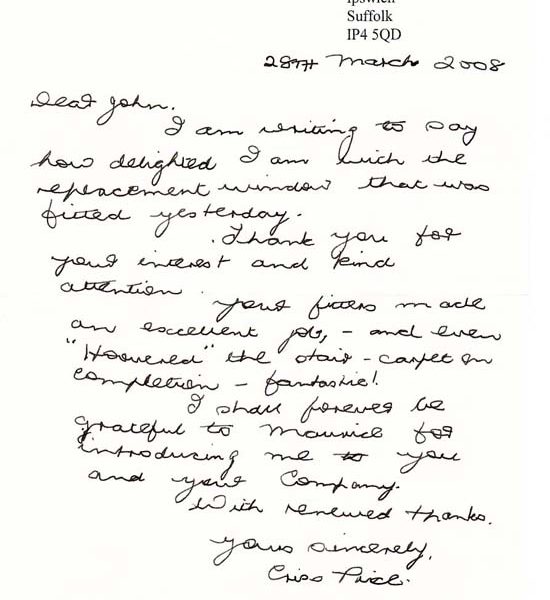 Ipswich
Suffolk
IP4 5QD
28TH March 2008
Dear John.
I am writing to say
how delighted I am with the
replacement window that was
fitted yesterday.
Thank you for
your interest and kind
attention.
Your fitters made
an excellent job, - and even
"Hoovered" the stair-carpet on
completion - fantastic!
I shall forever be
grateful to Maurice for
introducing me to you
and your Company.
With renewed thanks.
Yours sincerely,
Price.